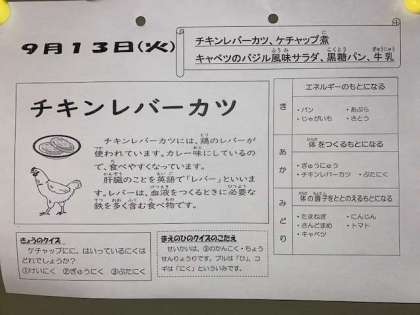 9月13日(火)
チキンレバーカツ、ケチャップ煮
キャベツのバジル風味サラダ、黒糖パン、牛乳
チキンレバーカツ
チキンレバーカツには、鶏のレバーが
使われています。カレー味にしているので
で、食べやすくなっています。
肝臓のことを英語で「レバー」といいま
す。レバーは、血液をつくるときに必要な
鉄を多く含む食べ物です。
きょうのクイズ
ケチャップにに、はいっているにくは
どれでしょうか？
①けいにく ②ぎゅうにく ③ぶたにく
まえのひのクイズのこたえ
せいかいは、③のかんこく・ちょう
せんりょうりです。プルは「ひ」、コ
ギは「にく」といういみです。
き
エネルギーのもとになる
・パン ・あぶら
・じゃがいも ・さとう
あか
体をつくるもとになる
・ぎゅうにゅう
・チキンレバーカツ ・ぶたにく
みどり
体の調子をととのえるもとになる
・たまねぎ ・にんじん
・さんどまめ ・トマト
・キャベツ